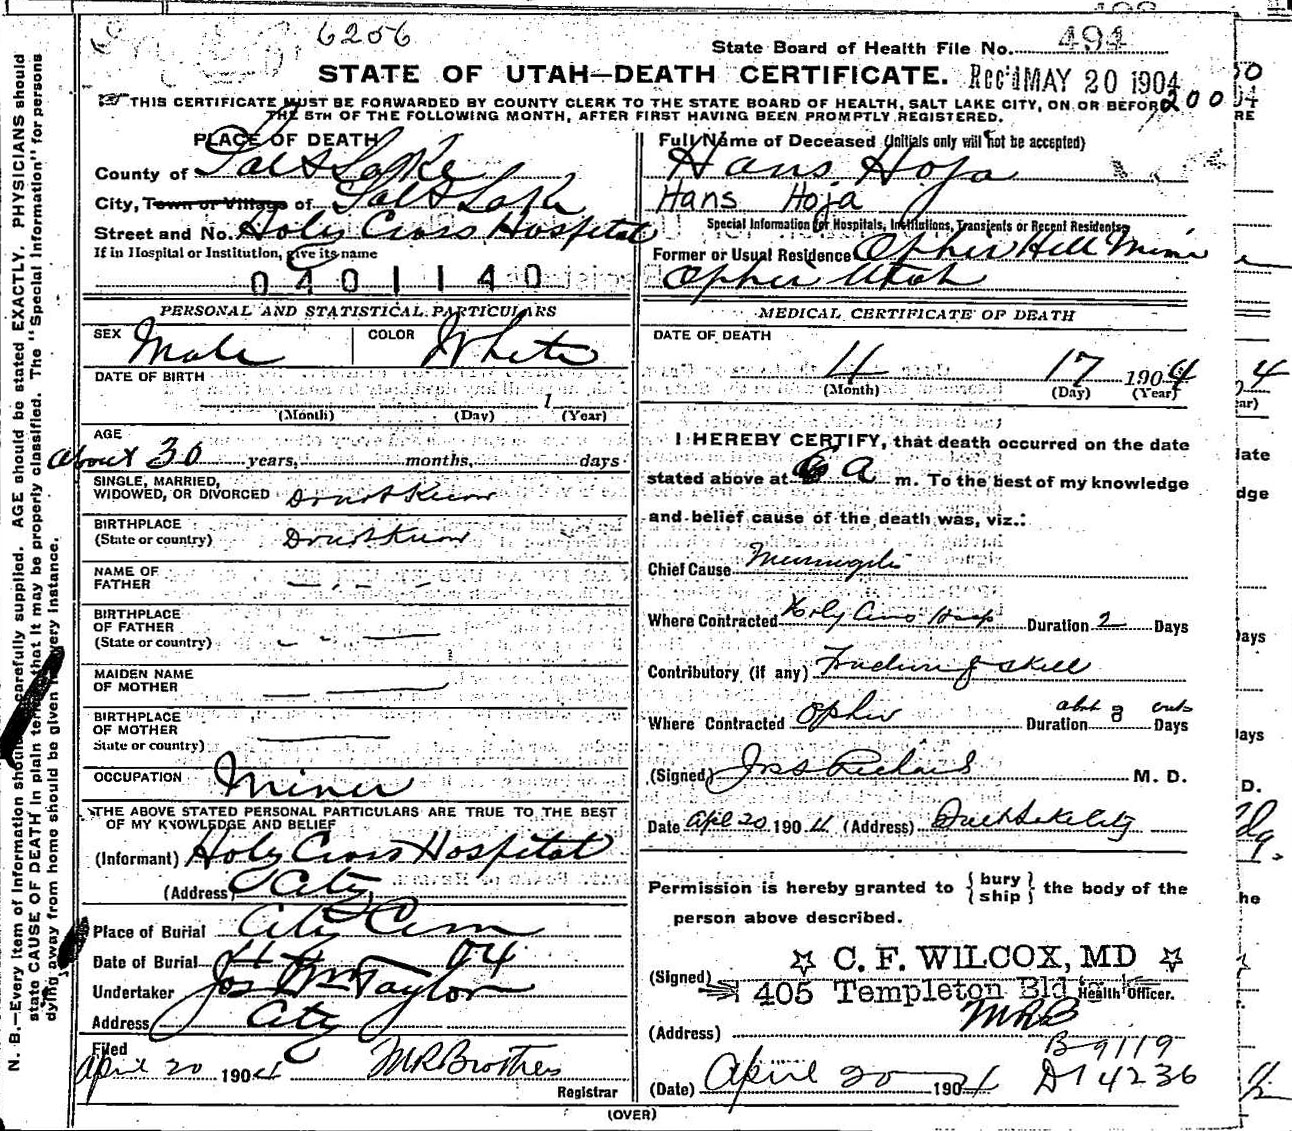 6206
State Board of Health File No. 494
STATE OF UTAH—DEATH CERTIFICATE.
Rec'd MAY 20 1904
THIS CERTIFICATE MUST BE FORWARDED BY COUNTY CLERK TO THE STATE BOARD OF HEALTH, SALT LAKE CITY, ON OR BEFORE
THE 5TH OF THE FOLLOWING MONTH, AFTER FIRST HAVING BEEN PROMPTLY REGISTERED.
200
PLACE OF DEATH
County of Salt Lake
City, Town or Village of Salt Lake
Street and No. Holy Cross Hospital
If in Hospital or Institution, give its name
0401140
Full Name of Deceased (Initials only will not be accepted)
Hans Hoja
Hans Hoja
Special Information for Hospitals, Institutions, Transients or Recent Residents
Former or Usual Residence Ophir Hill Mine
Ophir Utah
PERSONAL AND STATISTICAL PARTICULARS
SEX Male COLOR White
DATE OF BIRTH
1
(Month) (Day) (Year)
AGE
about 30 years, months, days
SINGLE, MARRIED,
WIDOWED, OR DIVORCED Dont Know
BIRTHPLACE
(State or country) Dont Know
NAME OF
FATHER
BIRTHPLACE
OF FATHER
(State or country)
MAIDEN NAME
OF MOTHER
BIRTHPLACE
OF MOTHER
State or country)
OCCUPATION Miner
THE ABOVE STATED PERSONAL PARTICULARS ARE TRUE TO THE BEST
OF MY KNOWLEDGE AND BELIEF
(Informant) Holy Cross Hospital
(Address) City
Place of Burial City Cem
Date of Burial 04
Undertaker Jos Wm Taylor
Address City
Filed
April 20 1904 M R Brothers
Registrar
MEDICAL CERTIFICATE OF DEATH
DATE OF DEATH
4 17 1904
(Month) (Day) (Year)
I HEREBY CERTIFY, that death occurred on the date
stated above at 6 a m. To the best of my knowledge
and belief cause of the death was, viz.:
Chief Cause Meningitis
Where Contracted Holy Cross Hosp Duration 2 Days
Contributory (if any) Fracture of skull
Where Contracted Ophir Duration abt 8 Days
(Signed) Jos S Richards M. D.
Date Apl 20 1904 (Address) Salt Lake City
Permission is hereby granted to { bury ship } the body of the
person above described.
(Signed) C. F. WILCOX, MD
405 Templeton Bldg Health Officer.
MRB
(Address)
B 9119
(Date) April 20 1904 D 14236
(OVER)
N. B.—Every item of information should be carefully supplied. AGE should be stated EXACTLY. PHYSICIANS should
state CAUSE OF DEATH in plain terms, that it may be properly classified. The "Special Information" for persons
dying away from home should be given in every instance.